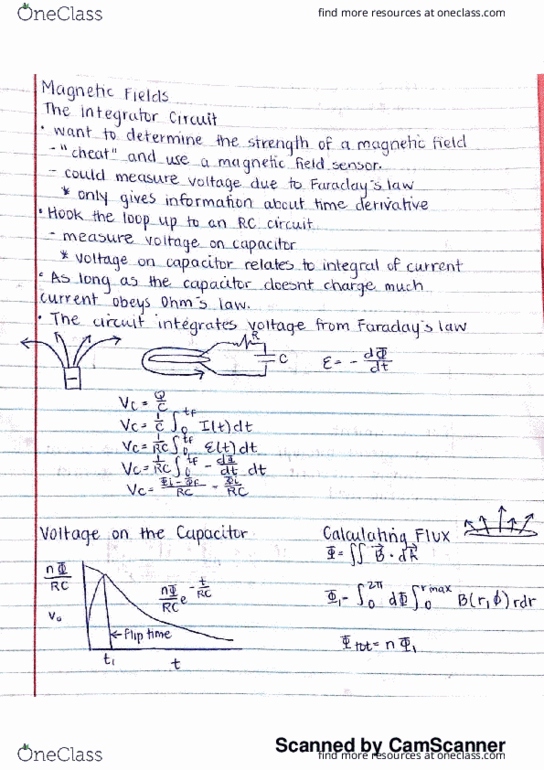 OneClass
find more resources at oneclass.com
Magnetic Fields
The integrator Circuit
• want to determine the strength of a magnetic field
- "cheat" and use a magnetic field sensor.
- could measure voltage due to Faraday's law
* only gives information about time derivative
• Hook the loop up to an RC circuit
- measure voltage on capacitor
* voltage on capacitor relates to integral of current
• As long as the capacitor doesnt charge much
current obeys Ohm's law.
• The circuit integrates voltage from Faraday's law
R
C
ε = - dΦ/dt
Vc = Q/C
Vc = 1/C ∫₀^tf I(t)dt
Vc = 1/RC ∫₀^tf ε(t)dt
Vc = 1/RC ∫₀^tf - dΦ/dt dt
Vc = Φi-Φf/RC = Φi/RC
Voltage on the Capacitor
nΦ/RC
nΦ/RC e^-t/RC
V₀
← flip time
t₁
t
Calculating Flux
Φ = ∫∫ B⃗ · dA⃗
Φ₁ = ∫₀^2π dΦ ∫₀^rmax B(r,ϕ) rdr
Φtot = nΦ₁
Scanned by CamScanner
OneClass
find more resources at oneclass.com